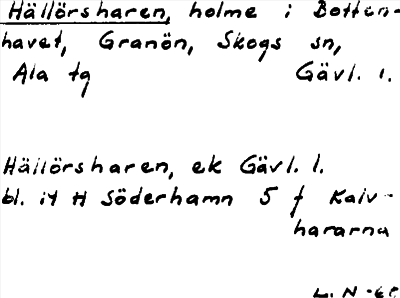 Hällörsharen, holme i Botten-
havet, Granön, Skogs sn,
Ala tg Gävl. l.
Hällörsharen, ek Gävl. l.
bl. 14 H Söderhamn 5 f Kalv-
hararna
L. N -60